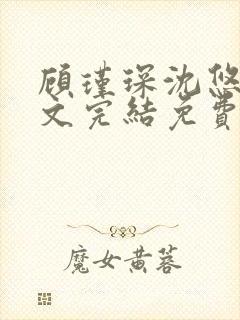 顧瑾琛沈悠
文完結免費
魔女黃蓉